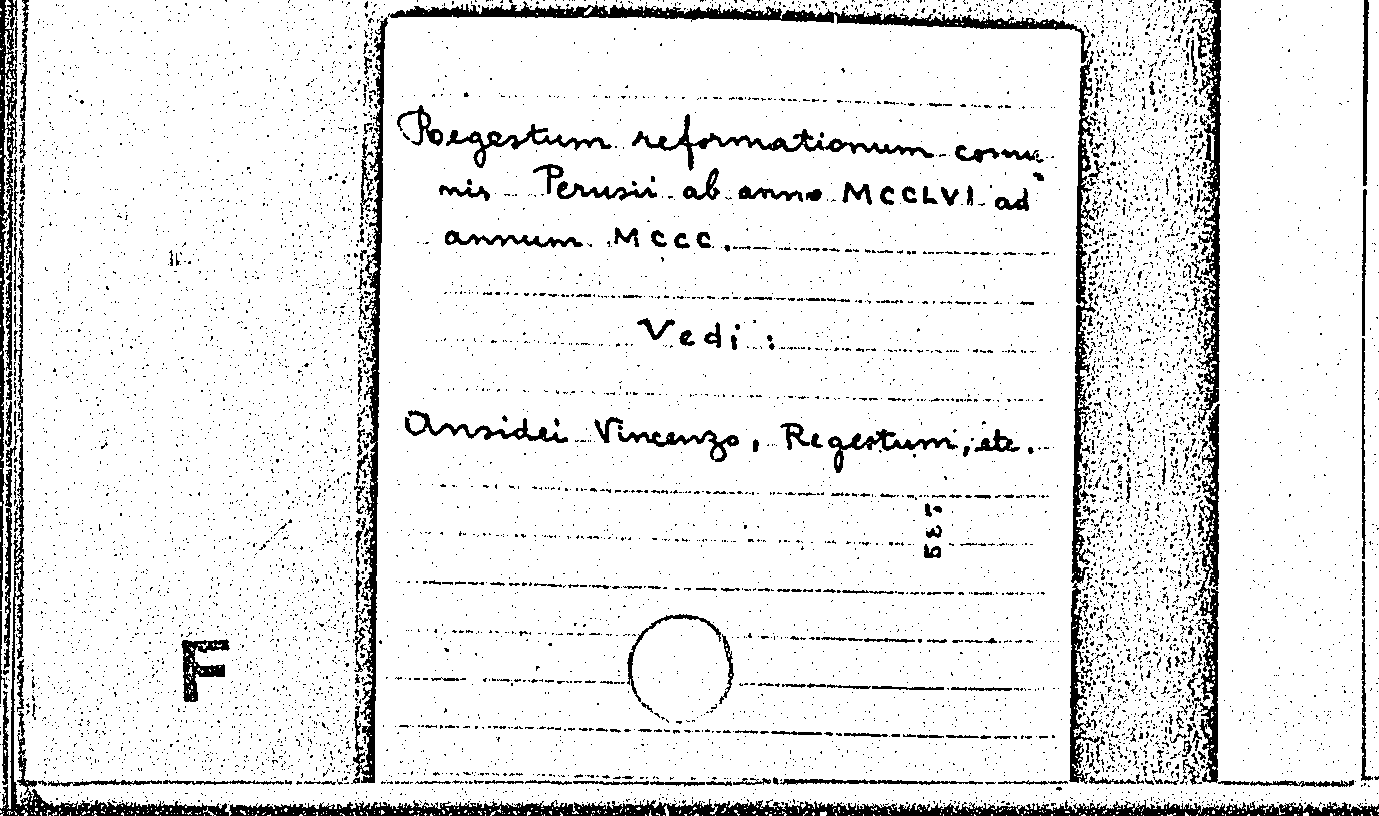 Regestum reformationum comu
nis Perusii ab anno MCCLVI ad
annum MCCC.
Vedi :
Ansidei Vincenzo, Regestum, etc.
F